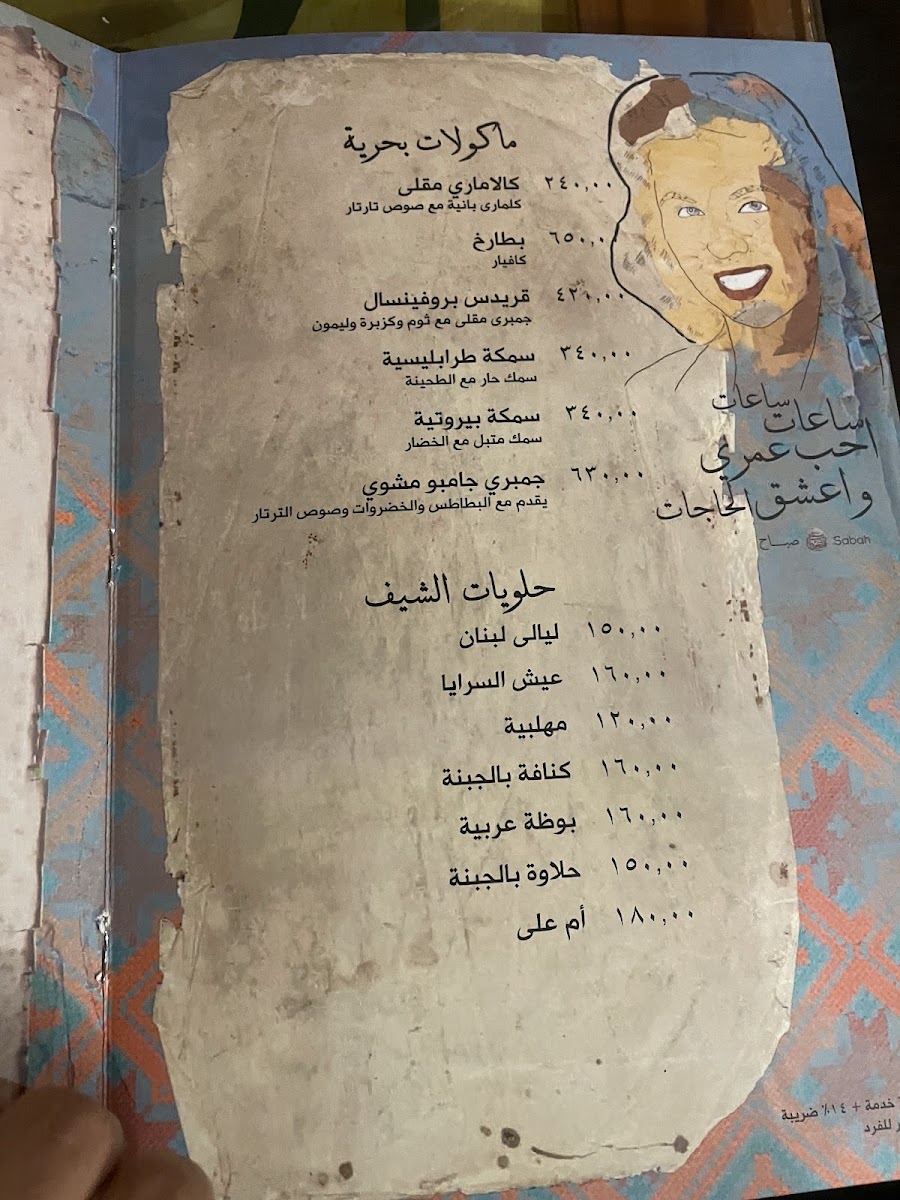 ماكولات بحرية
كالاماري مقلى ٢٤٠,٠٠
كلمارى بانية مع صوص تارتار
بطارخ ٦٥٠,٠٠
كافيار
قريدس بروفينسال ٤٢٠,٠٠
جمبرى مقلى مع ثوم وكزبرة وليمون
سمكة طرابليسية ٣٤٠,٠٠
سمك حار مع الطحينة
سمكة بيروتية ٣٤٠,٠٠
سمك متبل مع الخضار
جمبري جامبو مشوي ٦٣٠,٠٠
يقدم مع البطاطس والخضروات وصوص الترتار
حلويات الشيف
ليالى لبنان ١٥٠,٠٠
عيش السرايا ١٦٠,٠٠
مهلبية ١٢٠,٠٠
كنافة بالجبنة ١٦٠,٠٠
بوظة عربية ١٦٠,٠٠
حلاوة بالجبنة ١٥٠,٠٠
أم على ١٨٠,٠٠
ساعات
ساعات
احب عمري
واعشق الحاجات
Sabah صباح
خدمة + ١٤٪ ضريبة
للفرد